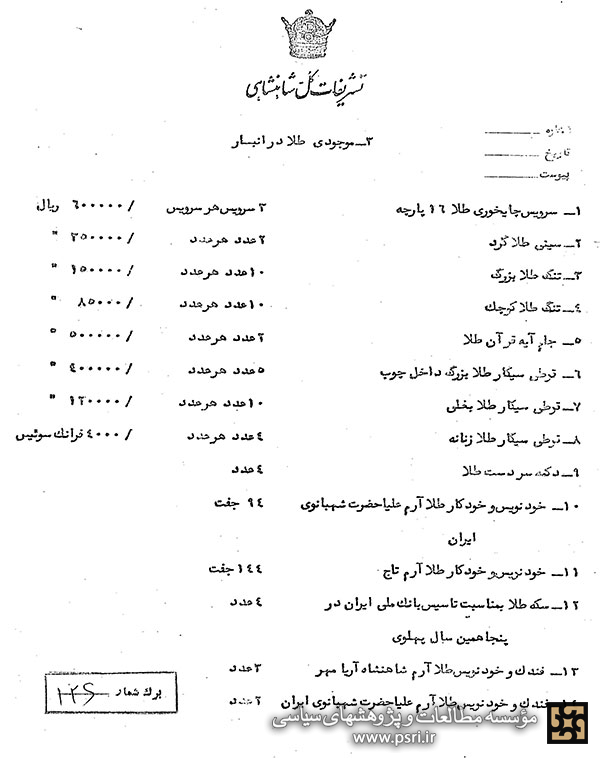 تشریفات کل شاهنشاهی
شماره
تاریخ
پیوست
۳ـ موجودی طلا در انبار
۱ـ سرویس چایخوری طلا ۱۶ پارچه ۳ سرویس هر سرویس ۶۰۰۰۰۰/ ریال
۲ـ سینی طلا گرد ۲ عدد هر عدد ۳۵۰۰۰۰/ "
۳ـ تنگ طلا بزرگ ۱۰ عدد هر عدد ۱۵۰۰۰۰/ "
۴ـ تنگ طلا کوچك ۱۰ عدد هر عدد ۸۵۰۰۰/ "
۵ـ جای آیه قرآن طلا ۲ عدد هر عدد ۵۰۰۰۰/ "
۶ـ قوطی سیگار طلا بزرگ داخل چوب ۵ عدد هر عدد ۴۰۰۰۰۰/ "
۷ـ قوطی سیگار طلا بغلی ۱۰ عدد هر عدد ۱۲۰۰۰۰/ "
۸ـ قوطی سیگار طلا زنانه ۴ عدد هر عدد ۴۰۰۰/ فرانك سوئیس
۹ـ دکمه سردست طلا ۴ عدد
۱۰ـ خودنویس و خودکار طلا آرم علیاحضرت شهبانوی ۹۴ جفت
ایران
۱۱ـ خودنویس و خودکار طلا آرم تاج ۱۴۴ جفت
۱۲ـ سکه طلا بمناسبت تاسیس بانك ملی ایران در ۴ عدد
پنجاهمین سال پهلوی
۱۳ـ فندك و خودنویس طلا آرم شاهنشاه آریا مهر ۳ عدد
فندك و خودنویس طلا آرم علیاحضرت شهبانوی ایران ۲ عدد
برگ شمار ۱۲۶
مؤسسه مطالعات و پژوهشهای سیاسی
www.psri.ir